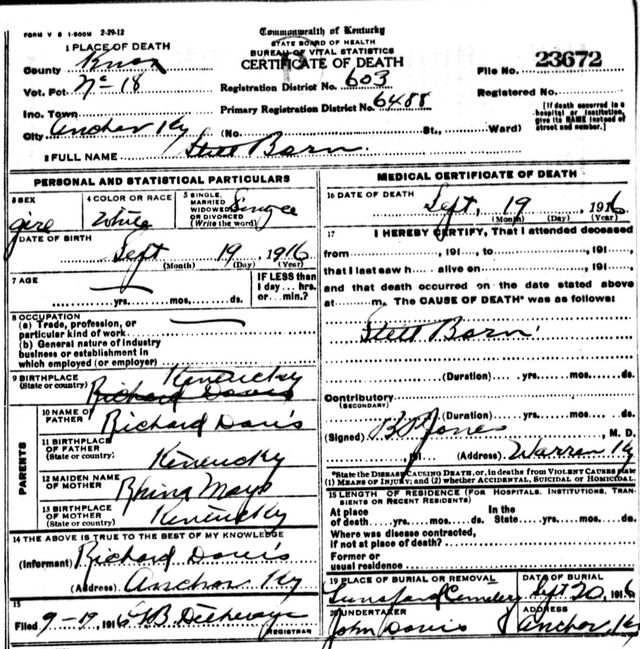 FORM V S 1-500M 2-29-12
Commonwealth of Kentucky
STATE BOARD OF HEALTH
BUREAU OF VITAL STATISTICS
CERTIFICATE OF DEATH
1 PLACE OF DEATH
County Knox
Vot. Pct. No 18
Inc. Town
City Anchor Ky (No. St., Ward)
Registration District No. 603
Primary Registration District No. 6488
File No. 23672
Registered No.
[If death occurred in a hospital or institution, give its NAME instead of street and number.]
2 FULL NAME Still Born
PERSONAL AND STATISTICAL PARTICULARS
3 SEX girl
4 COLOR OR RACE White
5 SINGLE, MARRIED WIDOWED OR DIVORCED (Write the word) Single
DATE OF BIRTH
Sept 19 1916
(Month) (Day) (Year)
7 AGE
yrs. mos. ds.
IF LESS than 1 day... hrs. or... min.?
8 OCCUPATION
(a) Trade, profession, or particular kind of work
(b) General nature of industry business or establishment in which employed (or employer)
9 BIRTHPLACE (State or country) Kentucky
PARENTS
10 NAME OF FATHER Richard Davis
11 BIRTHPLACE OF FATHER (State or country) Kentucky
12 MAIDEN NAME OF MOTHER Mays
13 BIRTHPLACE OF MOTHER (State or country) Kentucky
14 THE ABOVE IS TRUE TO THE BEST OF MY KNOWLEDGE
(Informant) Richard Davis
(Address) Anchor Ky
15
Filed 9-19, 1916
REGISTRAR
MEDICAL CERTIFICATE OF DEATH
16 DATE OF DEATH
Sept, 19 1916
(Month) (Day) (Year)
17 I HEREBY CERTIFY, That I attended deceased
from , 191 , to , 191 ,
that I last saw h alive on , 191 ,
and that death occurred on the date stated above
at m. The CAUSE OF DEATH* was as follows:
Still Born
(Duration) yrs. mos. ds.
Contributory
(SECONDARY)
(Duration) yrs. mos. ds.
(Signed) Jones, M. D.
, 191 (Address) Warren Ky
*State the DISEASE CAUSING DEATH, or, in deaths from VIOLENT CAUSES state (1) MEANS OF INJURY; and (2) whether ACCIDENTAL, SUICIDAL or HOMICIDAL.
18 LENGTH OF RESIDENCE (FOR HOSPITALS, INSTITUTIONS, TRANSIENTS OR RECENT RESIDENTS)
At place of death yrs. mos. ds. In the State yrs. mos. ds.
Where was disease contracted, if not at place of death?
Former or usual residence
19 PLACE OF BURIAL OR REMOVAL Lunsford Cemetery
DATE OF BURIAL Sept 20, 1916
20 UNDERTAKER John Davis
ADDRESS Anchor Ky